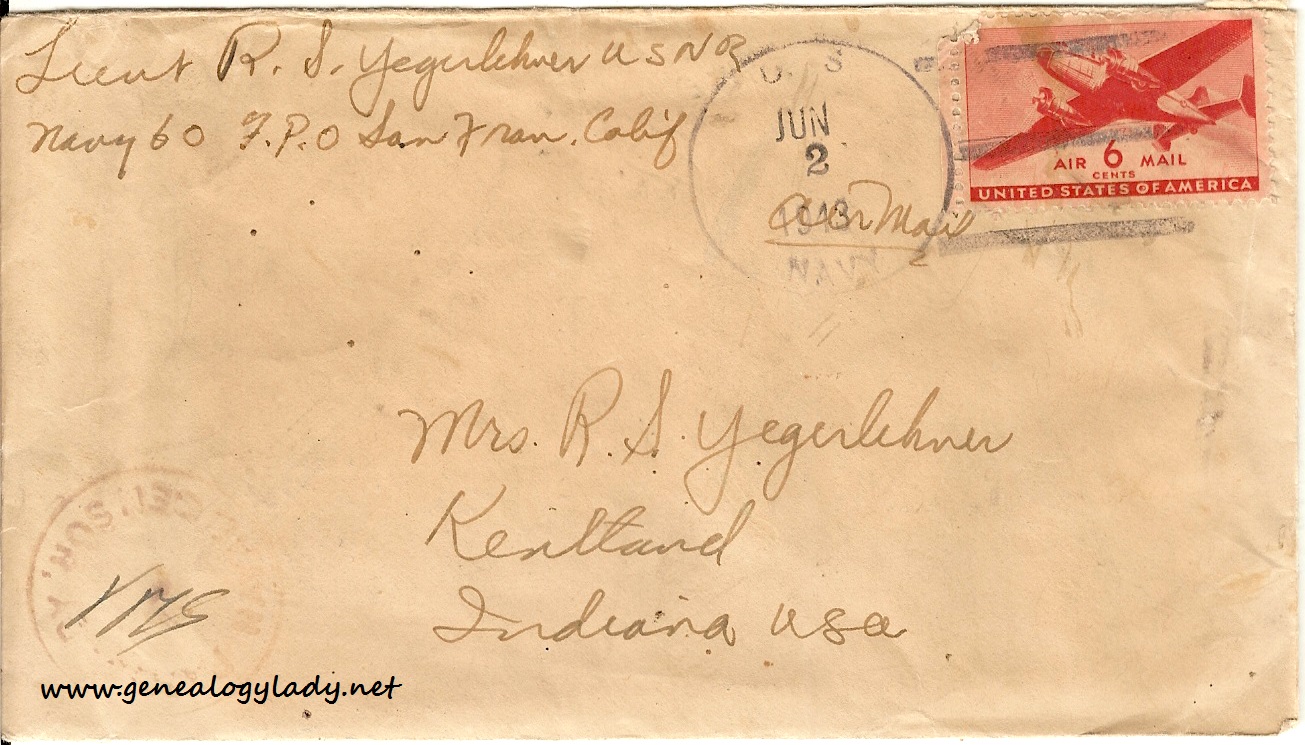 Lieut R. S. Yegerlehner USNR
Navy 60 F.P.O San Fran. Calif
U. S.
JUN
2
1943
NAVY
Air Mail
AIR 6 MAIL
CENTS
UNITED STATES OF AMERICA
Mrs. R. S. Yegerlehner
Kentland
Indiana USA
CENSOR
www.genealogylady.net